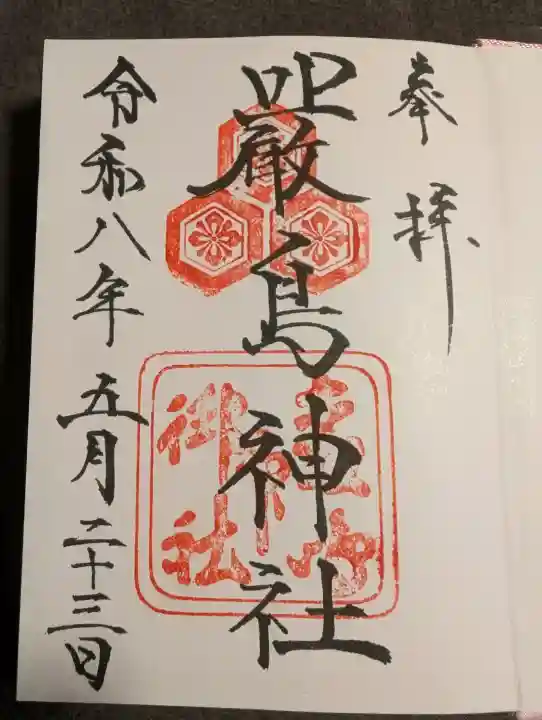 奉拝
嚴島神社
令和八年五月二十三日